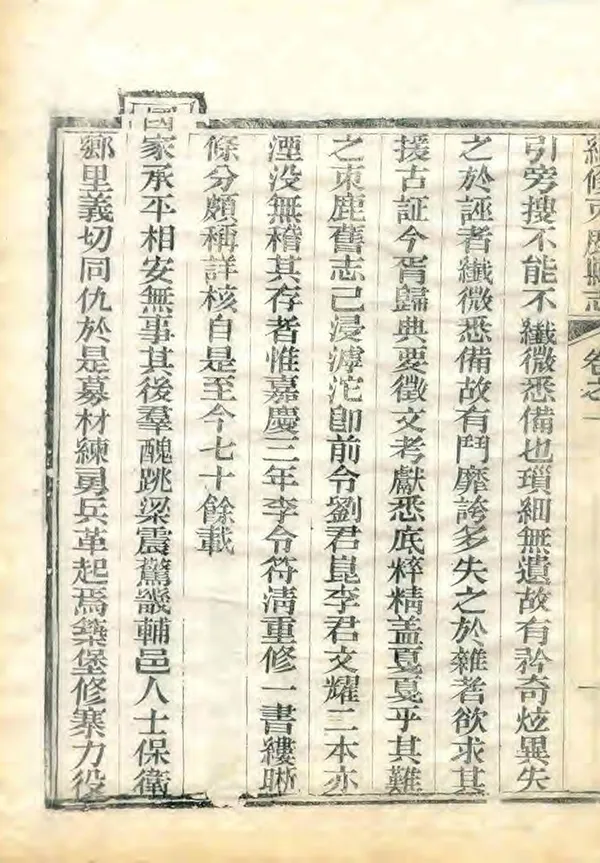 續修束鹿縣志 卷之一 一
引旁搜不能不纖微悉備也瑣細無遺故有矜奇炫異失
之於誣者纖微悉備故有鬥靡誇多失之於雜者欲求其
援古証今胥歸典要徵文考獻悉底粹精盖戛戛乎其難
之束鹿舊志已浸滹沱卽前令劉君崑李君文耀二本亦
湮没無稽其存者惟嘉慶三年李令符清重修一書縷晰
條分頗稱詳核自是至今七十餘載
國家承平相安無事其後羣醜跳梁震驚畿輔邑人士保衛
鄉里義切同仇於是募材練勇兵革起焉築堡修寨力役